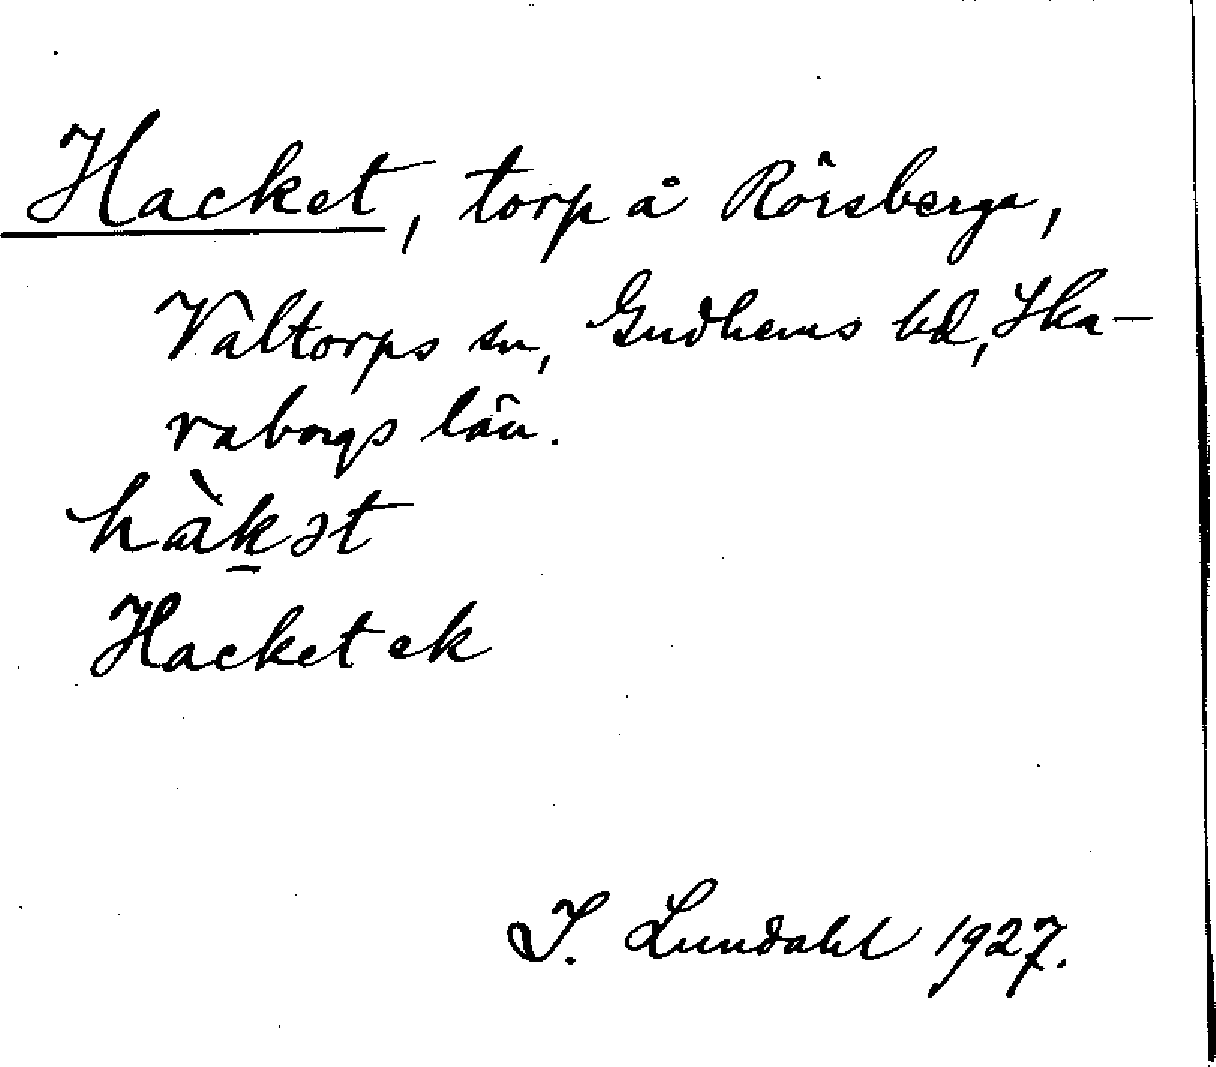 Hacket, torp å Rörsberga,
Valtorps sn, Gudhems hd, Ska-
raborgs län.
hàkət
Hacket ek
I. Lundahl 1927.